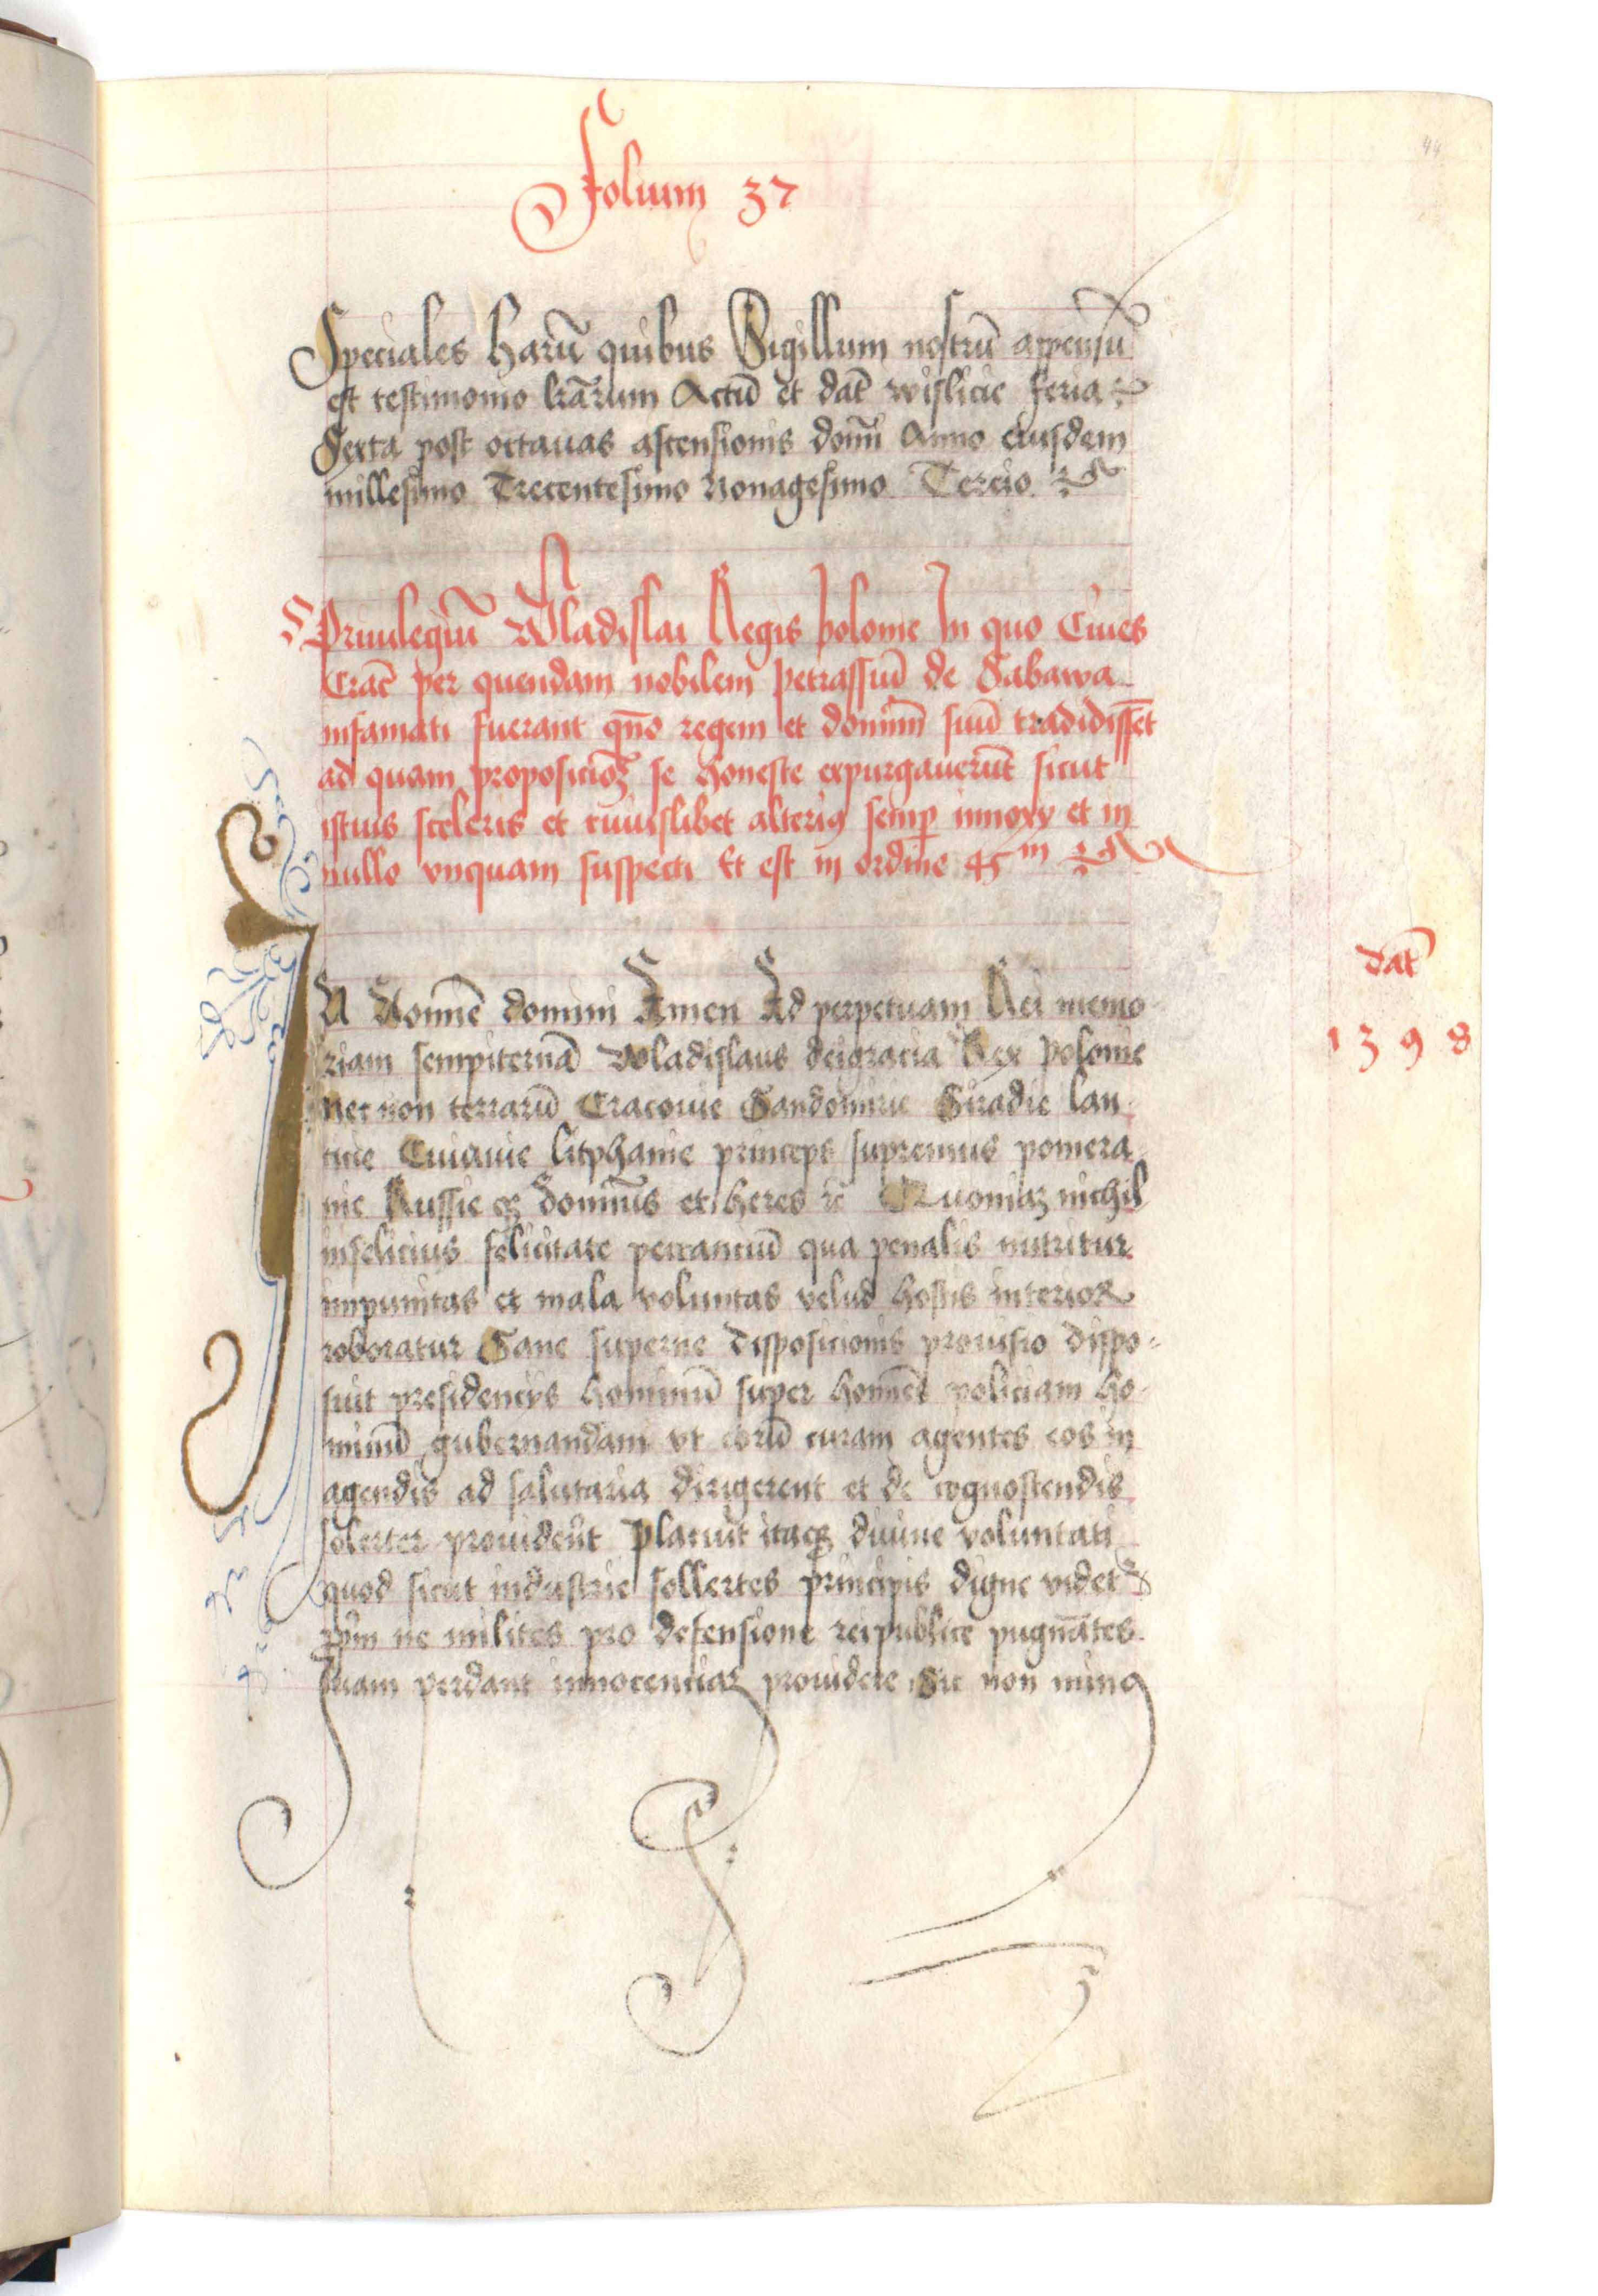 44
Folium 37
Speciales harū quibus Sigillum nostrū appensū
est testimonio lrārum Actū et dat̄ wislicie feria
Sexta post octauas ascensionis domī Anno eiusdem
millesimo Trecentesimo Nonagesimo Tercio
Priuilegiū Wladislai Regis polonie In quo Ciues
Crac̄ per quendam nobilem petrassiū de Sabawa
infamati fuerant qn̄o regem et dominū suū tradidissēt
ad quam proposicioꝫ se honeste expurgauerūt sicut
istius sceleris et cuiuslibet alteriꝯ semp̄ innoxy et in
nullo vnquam suspecti Et est in ordine 45m
dat̄
1398
IN Nomīe domini Amen Ad perpetuam Rei memo-
riam sempiternā Wladislaus deigracia Rex polonie
Nec non terrarū Cracouie Sandomirie Siradie lan-
cicie Cuiauie litphanie princeps supremus pomera-
nie Russie qꝫ domin̄us et heres ꝛc Quoniaꝫ nichil
infelicius felicitate peccanciū qua penalis nutritur
impunitas et mala voluntas velud hostis interior
roboratur Sane superne disposicionis prouisio dispo-
suit presidencys hominū super homīes policiam ho-
minū gubernandam vt eorū curam agentes eos in
agendis ad salutaria dirigerent et de cognoscendis
solerter prouiderēt Placuit itaqꝫ diuine voluntati
quod sicut industrie sollertes principis digne videt̄
ne milites pro defensione reipublice pugnātes
suam perdant innocenciaꝫ prouidere Sic non minꝯ